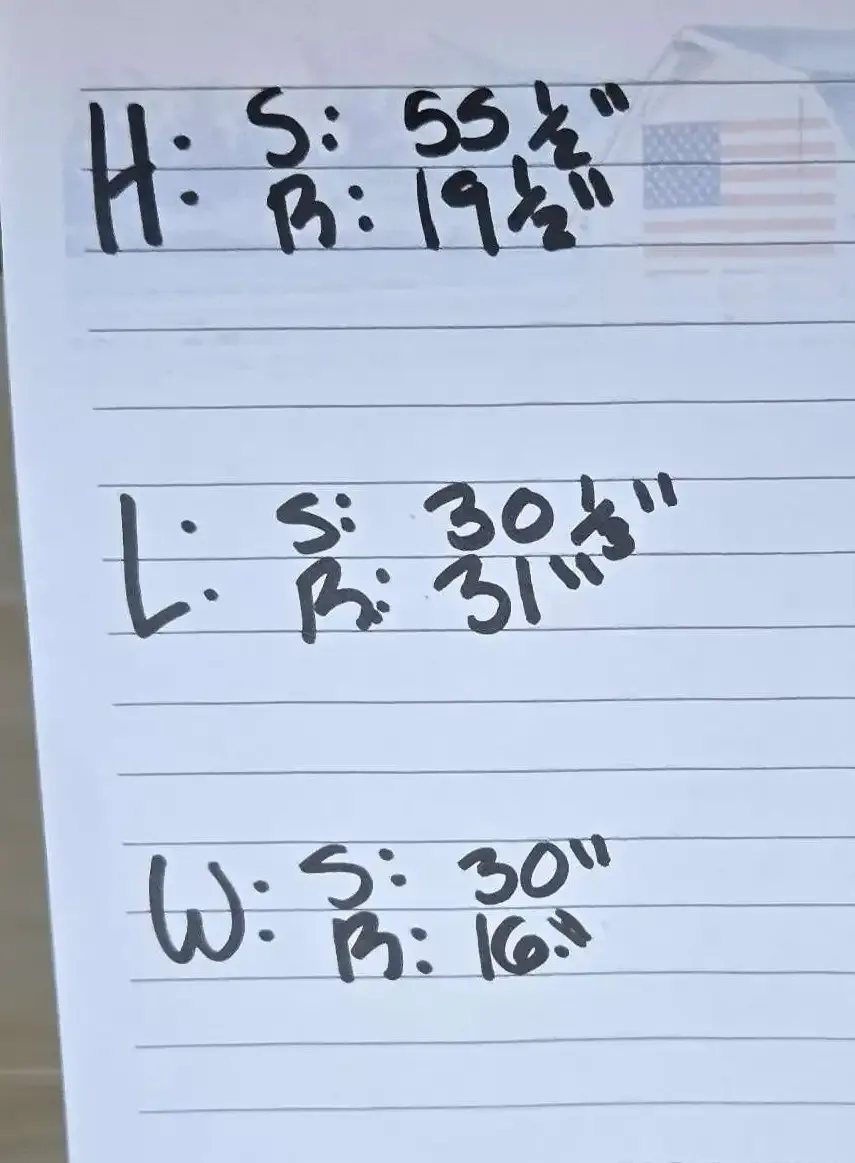 H: S: 55 1/2"
B: 19 1/2"
L: S: 30 1/3"
B: 31"
W: S: 30"
B: 16."